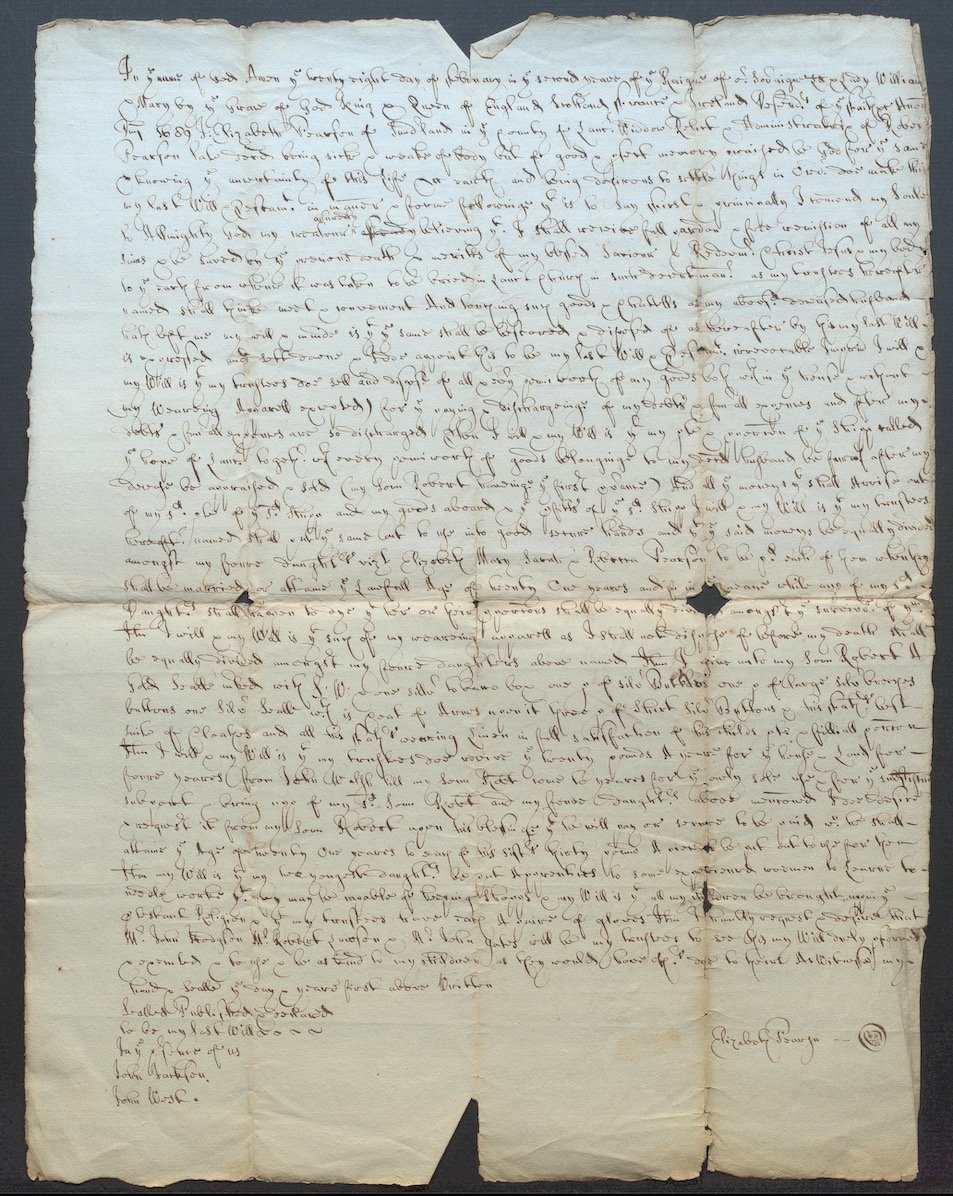 In yͤ name of God Amen yͤ twenty eight day of February in yͤ second yeare of yͤ Raigne of oʳ Soʳaigne Ld & Lady William
& Mary by yͤ Grace of God King & Queen of England Scotland ffrance & Ireland Defendʳˢ of yͤ faith &c Anoq
Dm̄ 1689 I Elizabeth Pearson of in yͤ County of Lancʳ Widdow Relict & Administratrix of Robert
Pearson late decd being sick & weake of body but of good & pfect memory praised be God for yͤ same
& knowing yͤ uncertainty of this life on earth and being desirous to settle things in Ordʳ doe make this
my last Will & Testamᵗ in manner & forme following yᵗ is to say first & principally I comend my Soule
to Almighty God my creatour assuredly believing yᵗ I shall receive full pardon & free remission of all my
sins & be saved by yͤ precious death & meritts of my blessed Saviour & Redeemʳ Christ Jesus my body
to yͤ earth from whence it was taken to be buried in Lancʳ Church in such decent mannʳ as my trustees hereafter
named shall thinke meet & convenient And touching such goods & Chattells as my decesed husband
hath left me my will & minde is yᵗ yͤ same shall be bestowed & disposed of as hereafter by this my last Will
is expressed and sett downe & I doe appoint this to be my last Will & Testamᵗ irrevocable Imprimˢ I will &
my Will is yᵗ my trustees doe sell and dispose of all & evʳy peni worth of my goods both in yͤ house & without
(my Wearing Apparell excepted) for yͤ paying & dischargeinge of my debts & funʳall expences and after my
debts & funʳall expences are so discharged then I will & my Will is yᵗ my pte & portion of yͤ Shipp called
yͤ hope of Lancʳ togethʳ wᵗʰ every peniworth of goods belonginge to my decd husband be forthwᵗʰ after my
decease be appraised & sold (my Son Robert haveinge yͤ first) And all yͤ moneys yᵗ shall Arrise out
of my sᵈ pte of yͤ sᵈ Shipp and my goods aboard & yͤ pfitts of yͤ sᵈ Shipp I will & my Will is yᵗ my trustees
hereaftʳ named shall putt yͤ same out to use into good secure hands and yᵗ yͤ said moneys be equally devided
amongst my foure daughtʳˢ vizᵗ Elizabeth Mary Sarah & Rebecca Pearson to be pᵈ each of them when they
shall be married or attaine yͤ Lawfull Age of twenty One yeares and if in yͤ meane while any of my sᵈ
Daughtʳˢ shall happen to dye yᵗ her or their portions shall be equally divided amongst yͤ survivors of yᵐ
Itm I will & my Will is yᵗ such of my wearing apparell as I shall not dispose of before my death shall
be equally divided amongst my foure daughters above named Itm I give unto my Son Robert A
Gold Seale marked with J: W: one silvʳ tobaco box one pʳ of silvʳ Buckles one pʳ of large silvʳ breeches
buttons one Silvʳ Seale wᶜʰ is Coat of Armes upon it three pʳ of Shirt Silvʳ Buttons & his fathʳˢ best
suite of Cloathes and all his fathʳˢ wearing Linen in full satisfaction of his childs pte & filliall portion
Itm I will & my Will is yᵗ my trustees doe receive yͤ twenty pounds A yeare for yͤ house & Land for
foure yeares from John Walsh till my Son Robᵗ come to yeares for yͤ only sole use & for yͤ
subport & bring upe of my sᵈ Son Robᵗ and my foure daughtʳˢ above mentioned I doe desire
& request it from my Son Robert upon his blessinge yᵗ he will pay or secure to be paid wⁿ he shall
attaine yͤ Age of twenty One yeares to each of his sistʳˢ thirty pound A to be put out to use for them
Itm my Will is yᵗ my two yongest daughtʳˢ be put Apprentices to some experienced women to Learne to
needle worke yᵗ they may be capable of keeping Shopps & my Will is yᵗ all my Children be brought upp in yͤ
pᵗestant Religion & yᵗ my trustees have each A paire of gloves Itm I lastly request & desire that
Mʳ John Hodgson Mʳ Robert Lawson & Mʳ John Yates will be my trustees to see this my Will duely pformed
& executed & to use & be as kind to my Children as they would have othʳˢ doe to theirs As Witnesse my
hand & Seale yͤ day & yeare first above Written
Sealled Published & declared
to be my last Will
In yͤ psence of us
John Jackson.
John West.
Elizabeth Pearson